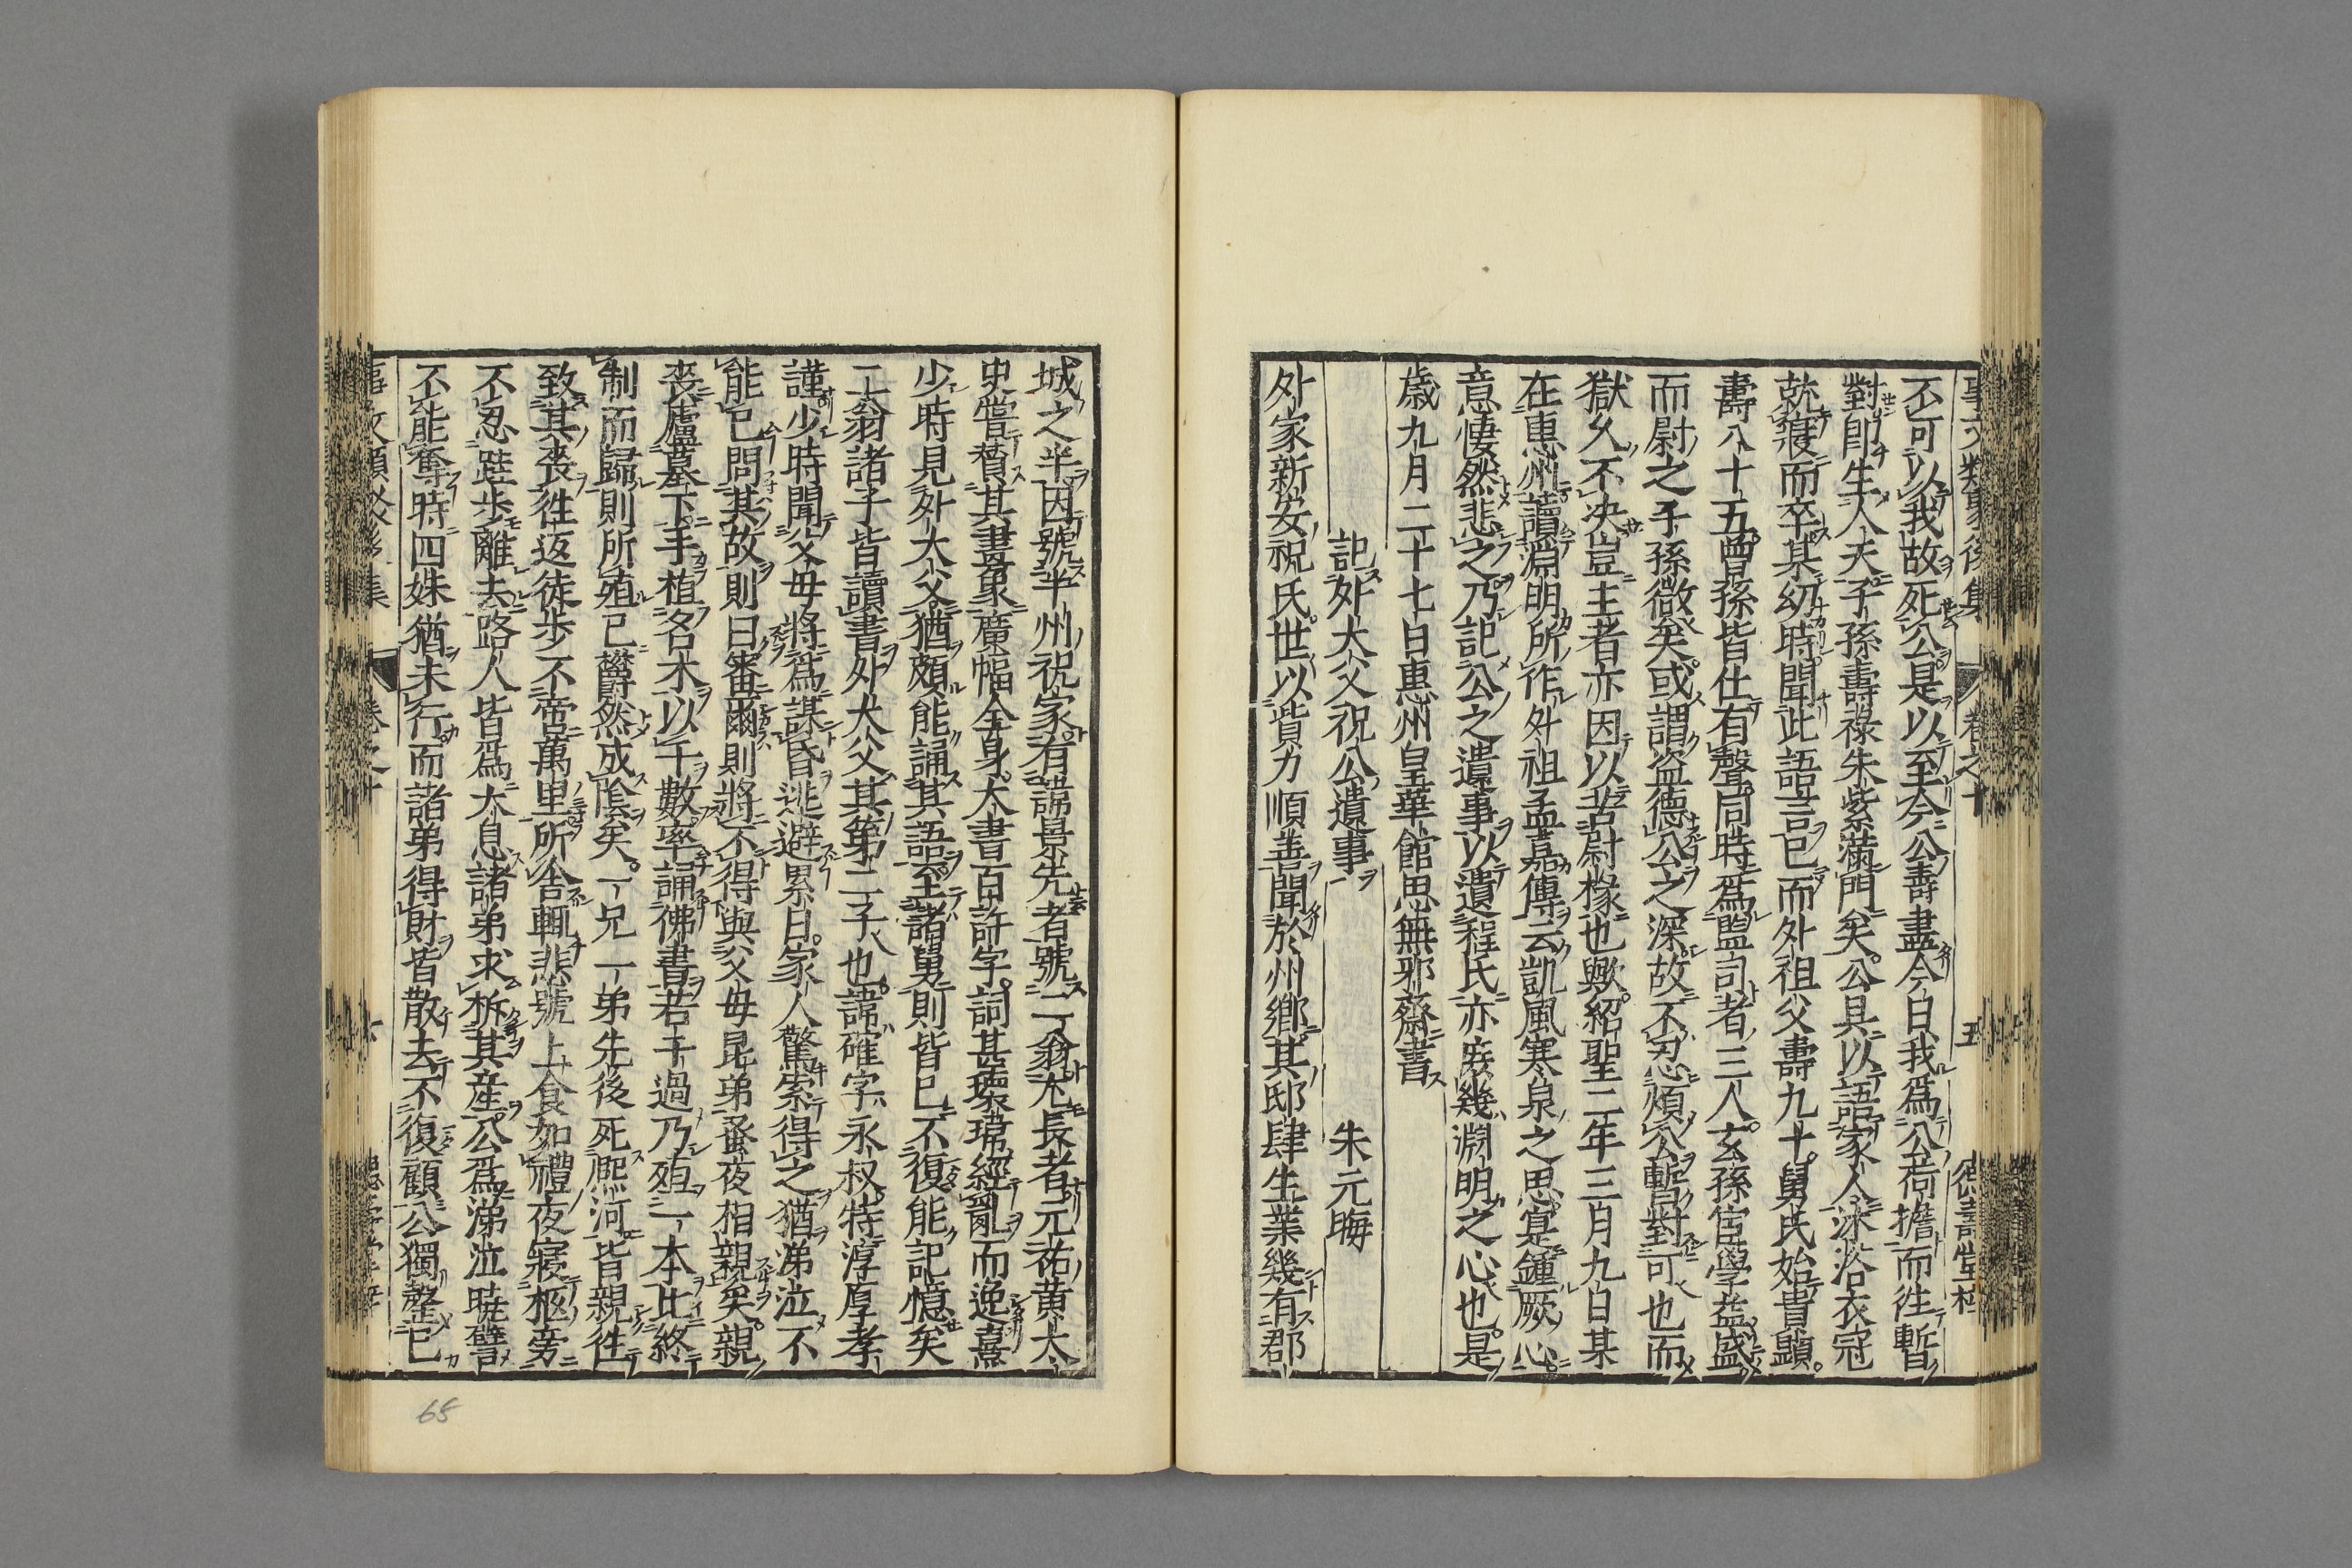 不可以我故死公是以至今公壽盡今日我爲公荷擔而往暫
對卽生人天子孫壽祿朱紫滿門矣公具以語家人沐浴衣冠
就寢而卒某幼時聞此語言已而外祖父壽九十舅氏始貴顯
壽八十五曾孫皆仕有聲同時爲監司者三人玄孫宦學益盛
而尉之子孫微矣或謂盜德公之深故不忍煩公暫對可也而
獄久不決豈主者亦因以苦尉掾也歟紹聖二年三月九日某
在惠州讀淵明所作外祖孟嘉傳云凱風寒泉之思寔鍾厥心
意悽然悲之乃記公之遺事以遺程氏亦庶幾淵明之心也是
歲九月二十七日惠州皇華館思無邪齋書
記外大父祝公遺事 朱元晦
外家新安祝氏世以貲力順善聞於州鄉其邸肆生業幾有郡
城之半因號半州祝家有諱景先者號二翁尤長者元祐黃太
史嘗贊其畫象廣幅全身大書百許字詞甚瓌瑋經亂而逸熹
少時見外大父猶頗能誦其語至諸舅則皆已不復能記憶矣
二翁諸子皆讀書外大父其第二子也諱確字永叔特淳厚孝
謹少時聞父母將爲謀昏逃避累日家人驚索得之猶涕泣不
能已問其故則曰審爾則將不得與父母昆弟蚤夜相親矣親
喪廬墓下手植名木以千數率誦佛書若干過乃殖一本比終
制而歸則所殖已欝然成陰矣一兄一弟先後死熈河皆親往
致其喪往返徒步不啻萬里所舎輒悲號上食如禮夜寢柩旁
不忍跬步離去路人皆爲大息諸弟求柝其産公爲涕泣曉譬
不能奪時四妹猶未行而諸弟得財皆散去不復顧公獨整已
65